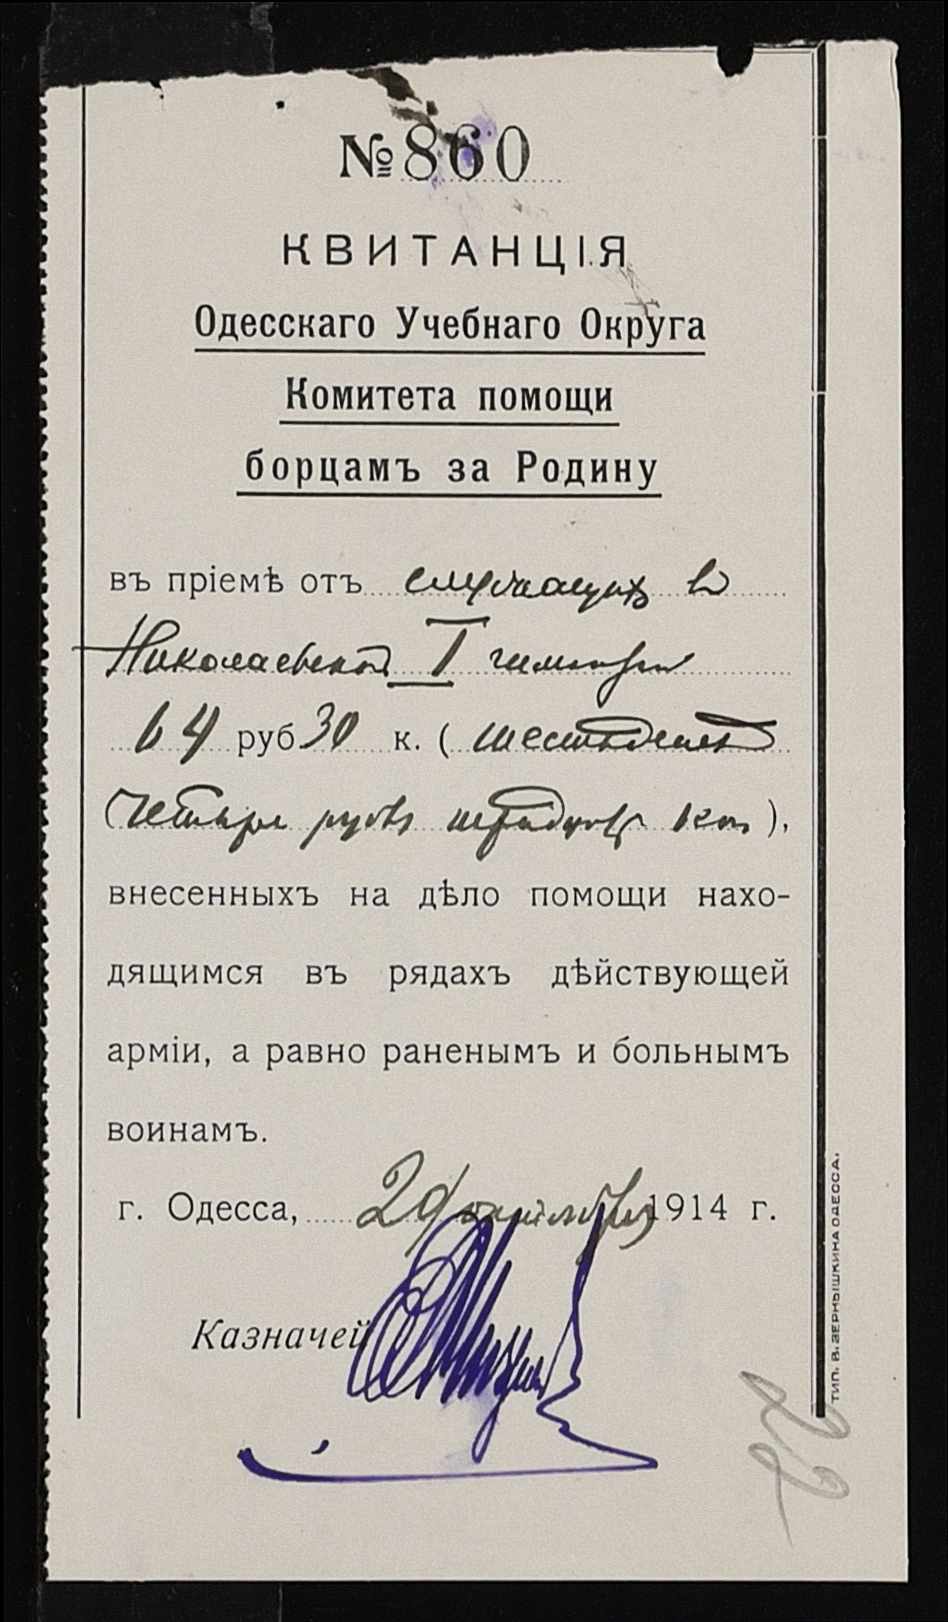 № 860
КВИТАНЦІЯ
Одесскаго Учебнаго Округа
Комитета помощи
борцамъ за Родину
въ пріемѣ отъ служащихъ в
Николаевской I гимназіи
64 руб 30 к. (шестьдесят
четыре рубл тридцать коп),
внесенныхъ на дѣло помощи нахо-
дящимся въ рядахъ дѣйствующей
арміи, а равно раненымъ и больнымъ
воинамъ.
г. Одесса, 1914 г.
Казначей
ТИП. В. ЗЕРНЫШКИНА ОДЕССА.
22